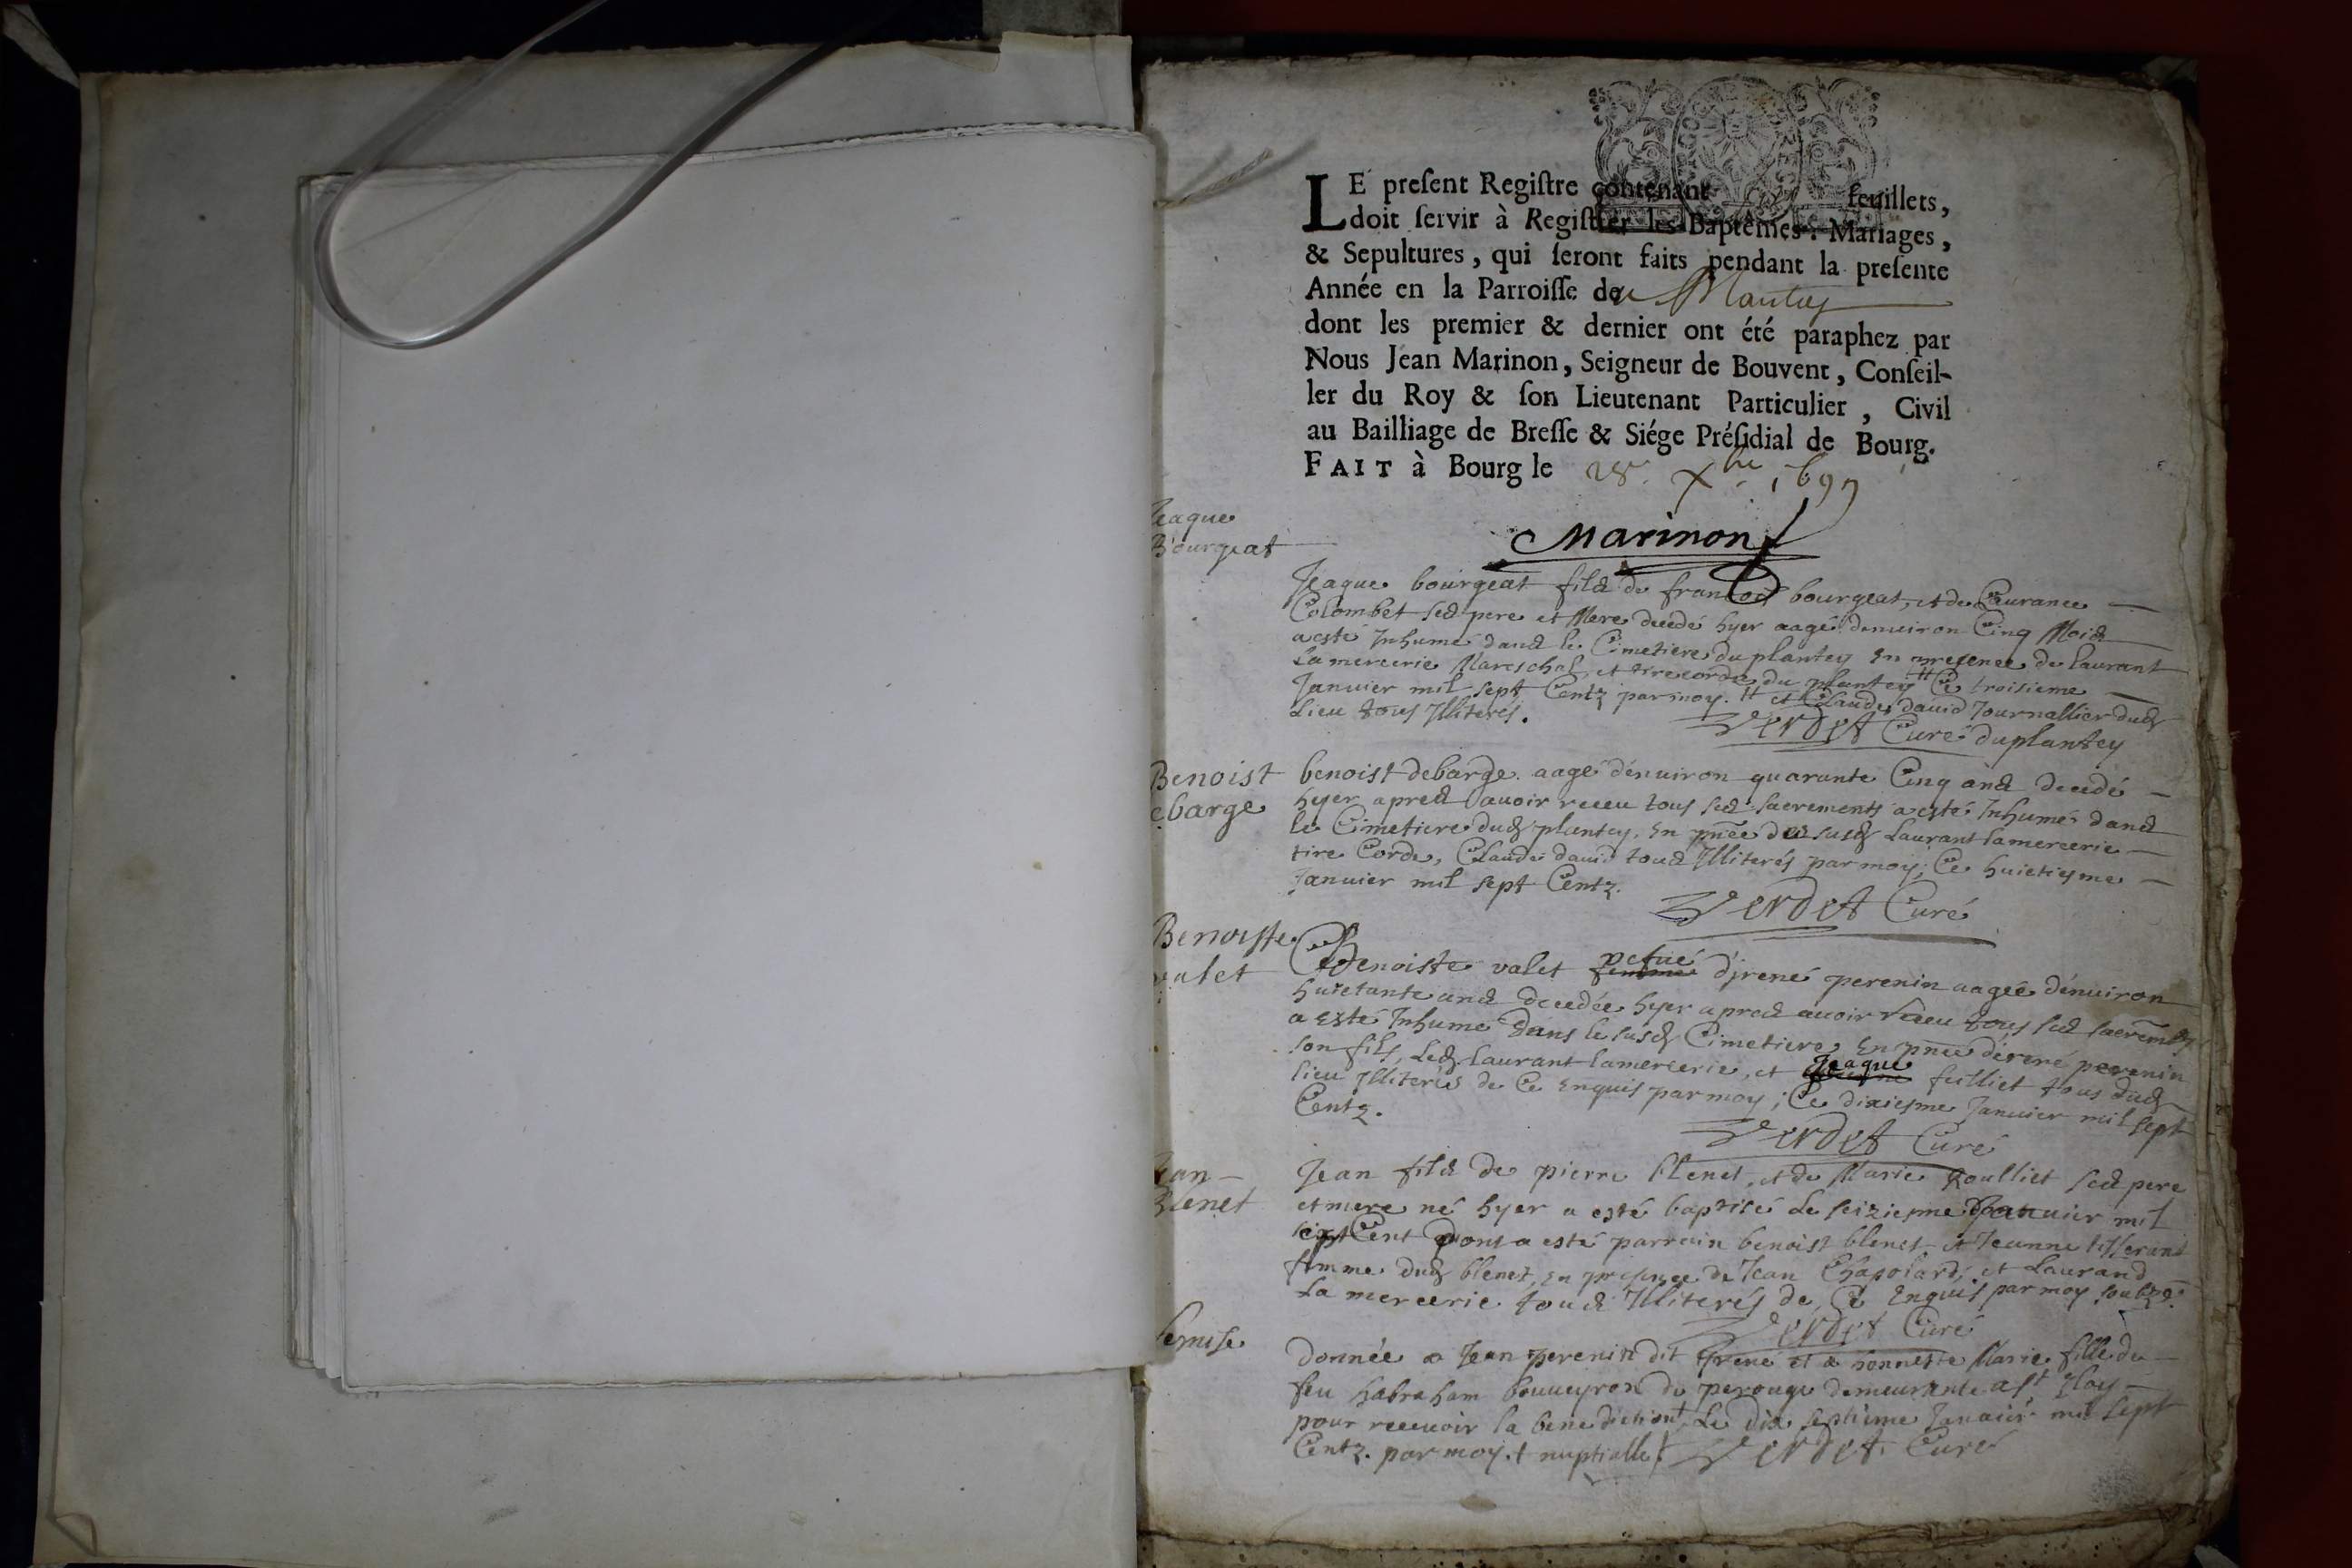 LE present Registre contenant feuillets,
doit servir à Registrer les Baptêmes, Mariages,
& Sepultures, qui seront faits pendant la presente
Année en la Parroisse de
dont les premier & dernier ont été paraphez par
Nous Jean Marinon, Seigneur de Bouvent, Conseil-
ler du Roy & son Lieutenant Particulier, Civil
au Bailliage de Bresse & Siége Présidial de Bourg.
FAIT à Bourg le
Marinon
Jeaque
Bourgeat
Jeaque bourgeat fils de françois bourgeat, et de Laurance
Colombet ses pere et Mere decedé hyer aagé denuiron Cinq Mois
a esté Inhumé dans le Cimetiere du plantey En presence de laurant
Lamercerie Mareschal, et tirecorde du plantey # Ce troisieme
Januier mil sept Centz par moy. # et Claude dauid Journallier dud
Lieu tous Illiterés.
Verdet Curé du plantey
Benoist
ebarge
benoist debarge aagé d'enuiron quarante Cinq ans decedé
hyer apres auoir receu tous ses sacrements a esté Inhumé dans
le Cimetiere dud plantey. En pñce des susd Laurant lamercerie
tire Corde, Claude dauid tous Illiterés par moy; Ce huictiesme
Januier mil sept Centz.
Verdet Curé
Benoiste
valet
Benoiste valet d'jrené perenin aagée d'enuiron
huictante ans decedée hyer apres auoir receu tous ses sacremts
a Esté Inhumé Dans le susd Cimetiere, En pñce d'irené perenin
son fils, Led. Laurant lamercerie, et Jeaque fulliet tous dud
lieu Illiterés de Ce Enquis par moy; Ce dixiesme Januier mil sept
Centz.
Verdet Curé
ean
Blenet
Jean fils de pierre blenet, et de Marie Roulliet ses pere
et mere né hyer a esté baptisé Le seiziesme Januier mil
sept Cent Dont a esté parrain benoist blenet et Jeanne tisserand
femme dud blenet, En presence de Jean Chapolard, et Laurand
La mercerie tous Illiterés de Ce Enquis par moy soubz.
Verdet Curé
Remise
Donnée a Jean perenin dit Irené et a honneste Marie fille du
feu habraham bouueyron de perouge demeurante a st Eloy
pour receuoir la benediction † Le dix septieme Januier mil sept
Centz. par moy. † nuptialle † Verdet Curé